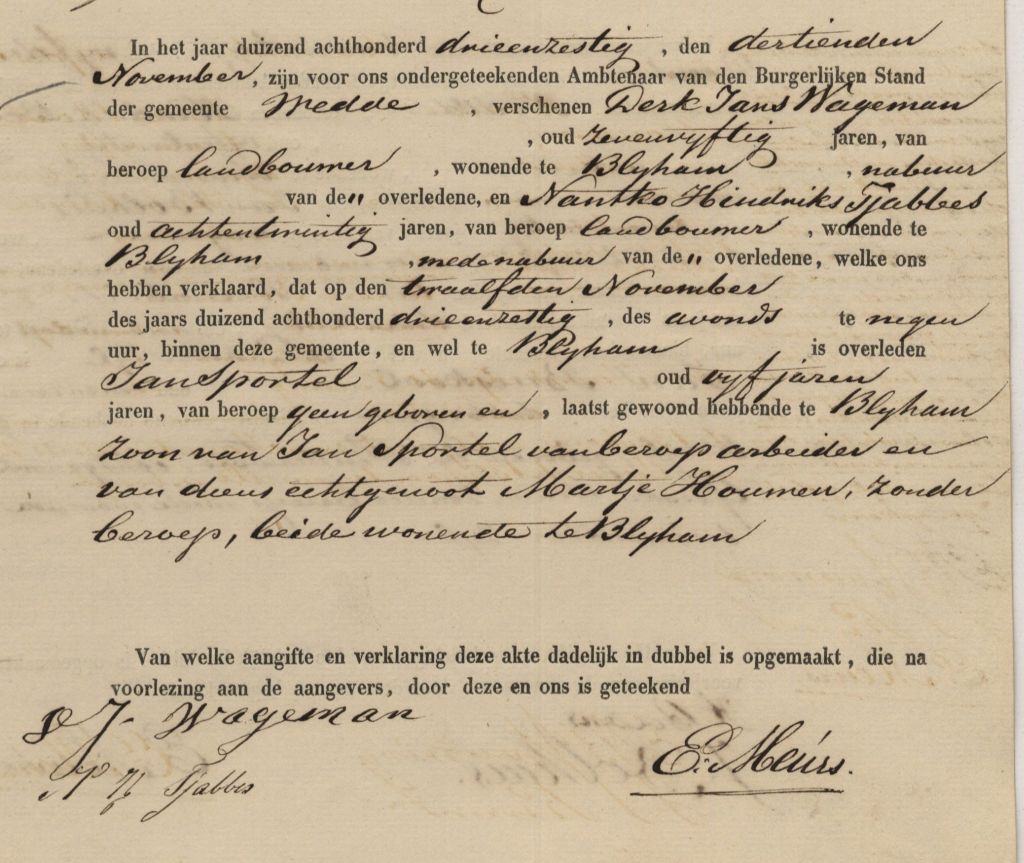 In het jaar duizend achthonderd drieenzestig, den dertienden
November, zijn voor ons ondergeteekenden Ambtenaar van den Burgerlijken Stand
der gemeente Wedde, verschenen Derk Jans Wageman
, oud zevenvyftig jaren, van
beroep landbouwer, wonende te Blyham, nabuur
van de " overledene, en Nantko Hindriks Tjabbes
oud achtentwintig jaren, van beroep landbouwer, wonende te
Blyham, medenabuur van de " overledene, welke ons
hebben verklaard, dat op den twaalfden November
des jaars duizend achthonderd drieenzestig, des avonds te negen
uur, binnen deze gemeente, en wel te Blyham is overleden
Jan Sportel oud vyf jaren
jaren, van beroep geen geboren en, laatst gewoond hebbende te Blyham
zoon van Jan Sportel van beroep arbeider en
van diens echtgenoot Martje Houwen, zonder
beroep, beide wonende te Blyham
Van welke aangifte en verklaring deze akte dadelijk in dubbel is opgemaakt, die na
voorlezing aan de aangevers, door deze en ons is geteekend
J Wageman
E. Meurs.
N H Tjabbes